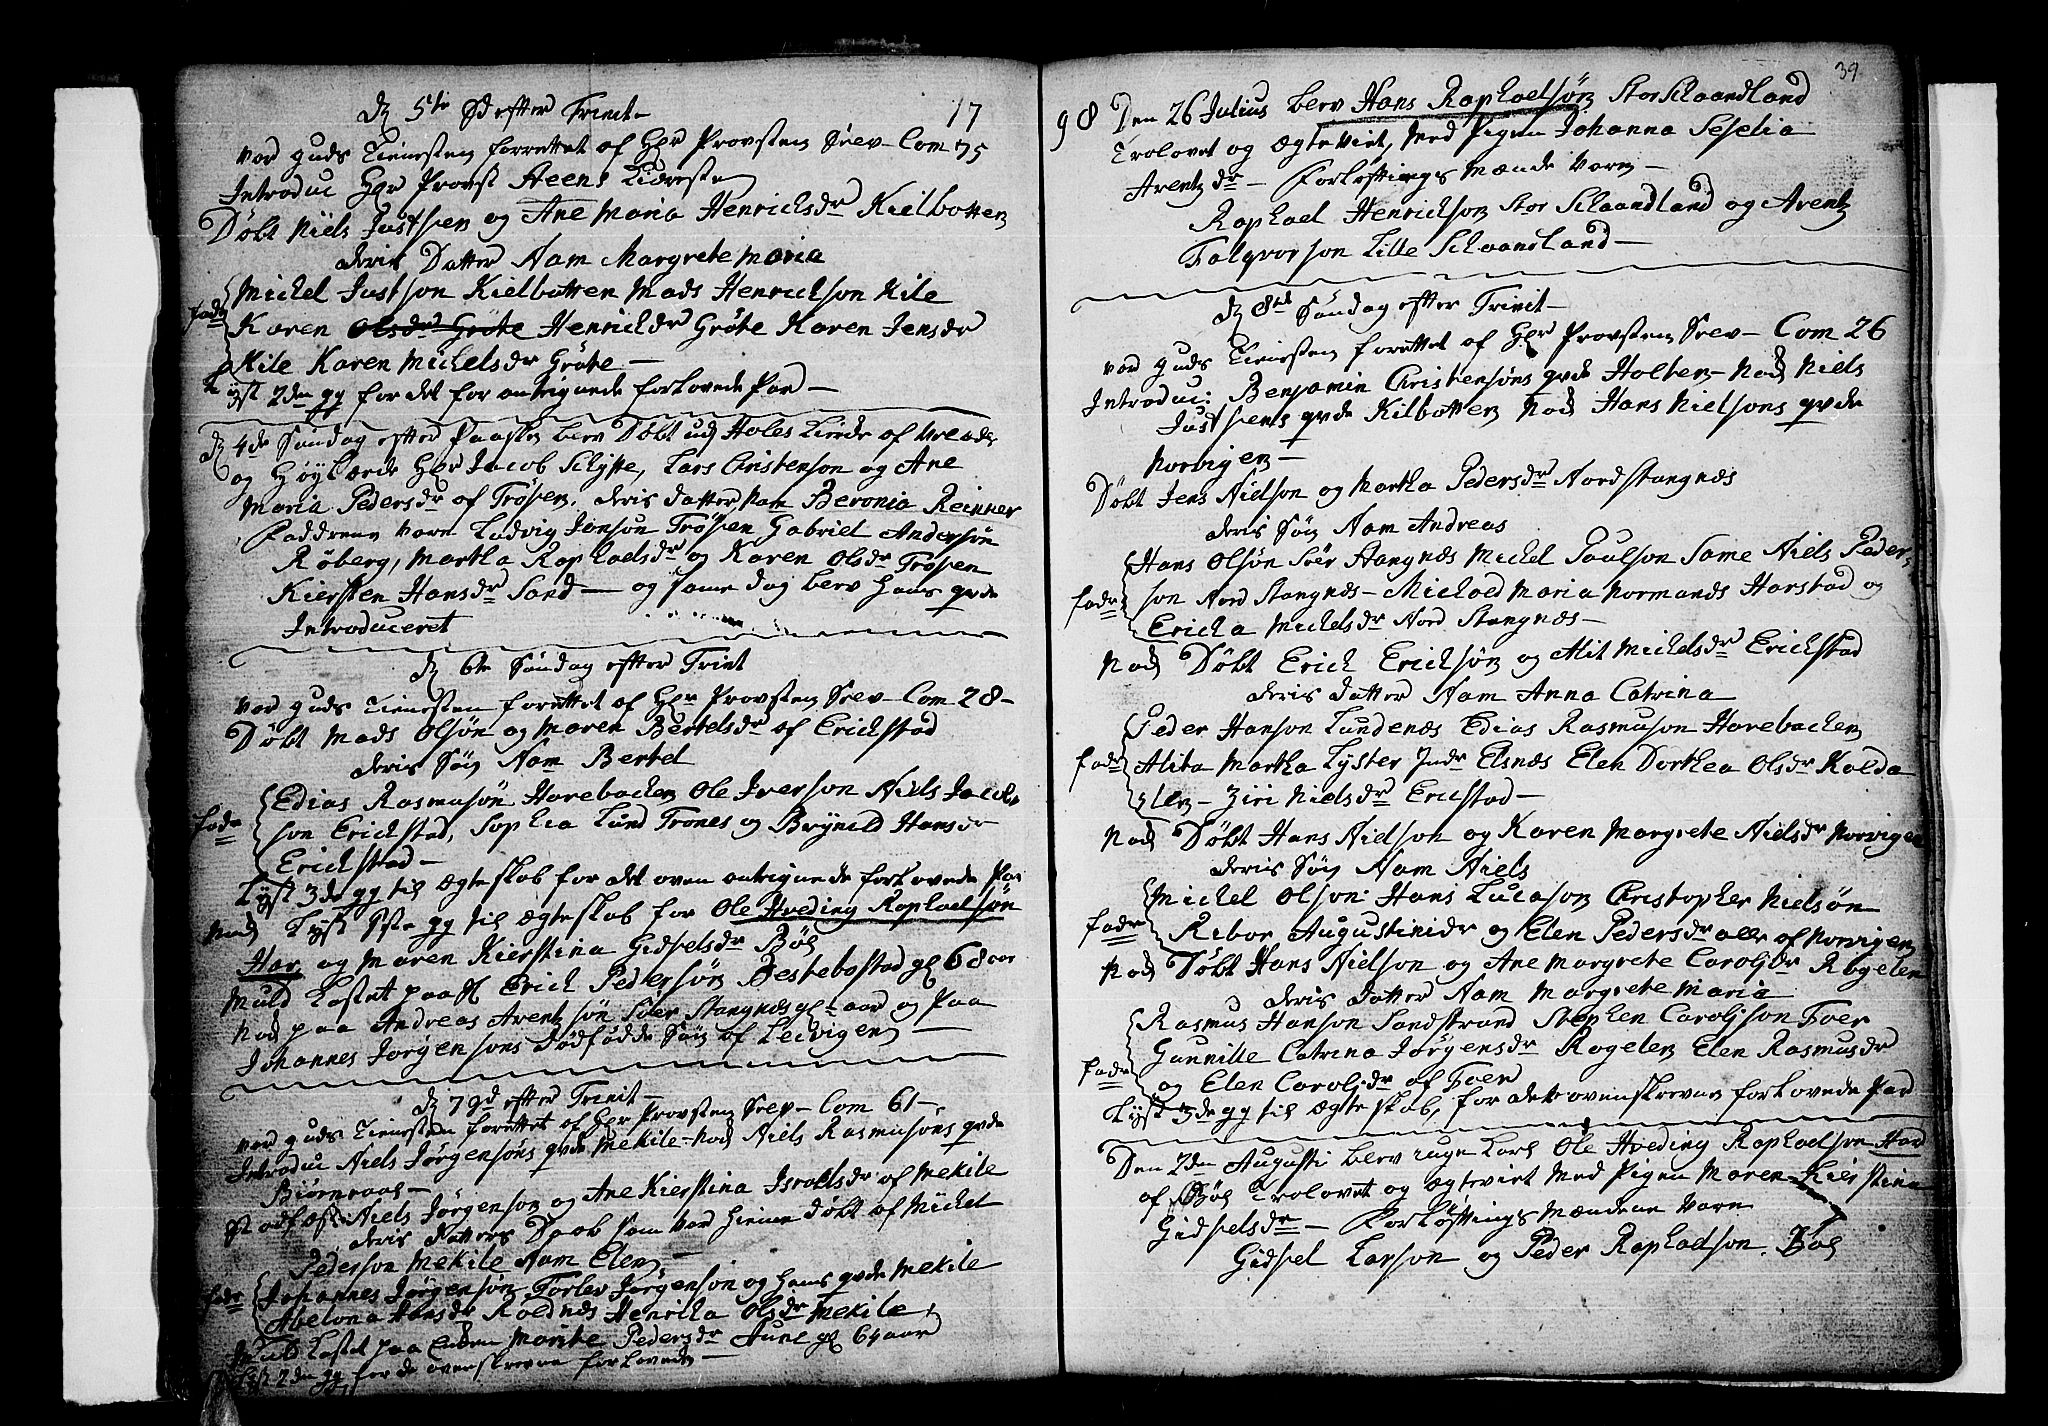 17
D 5te Sd efter Trinit-
var guds Tienesten forrettet af Hr Provsten Srev- Com 75
Introduc Hr Provst Steens
Døbt Niels Justsen og Ane Maria Henrichsdr Kielbotten
deris Datter Nam Margrete Maria
fadr Michel Justson Kielbotten Mads Henrichson Kile
Karen Olsdr Grøte Henrichdr Grøte Karen Jensdr
Kile Karen Michelsdr Grøte-
Lyst 2den gg for det for antegnede forlovede Par-
D 4de Søndag efter Paaske blev Døbt ud
og Høylærde Hr Jacob Schytte, Lars Christenson og Ane
Maria Pedersdr af Trøsen. deris datter, Nam Beronia Reinner
Faddrene vare Ludvig Janson Trøsen Gabriel Andersøn
Røberg, Martha Raphaelsdr og Karen Olsdr Trøsen
Kiersten Hansdr Sand- og same dag blev hans qvde
Introduceret
D 6te Søndag efter Trint
var guds Tienesten forrettet af Hr Provsten Srev- Com 28-
Døbt Mads Olsøn og Maren Bertelsdr af Erichstad
deris Søn Nam Bertel
fadr Edias Rasmusøn Harebacken Ole Iverson Niels Jacob-
son Erichstad, Sophia Lund Trones og Brynild Hansdr
Erichstad-
Lyst 3de gg til ægteskab for det oven antegnede forlovede Par
Nok Lyst 1ste gg til ægteskab for Ole Hveding Raphaelsøn
Har og Maren Kierstina Gidselsdr Bøl
Muld kastet paa Erich Pedersøn Bestebostad gl 68 aar
Nok paa Andreas Arentsøn Sør Stangnæs gl aar og paa
Johannes Jørgensons dødfødde Søn af Leivigen-
D 7 Sd efter Trinit-
var guds Tienesten forrettet af Hr Provsten Srev- Com 61-
Introduc Niels Jørgensøns qvde Mekile- Nok Niels Rasmusøns qvde
Biørnraae-
Stadfæst Niels Jørgenson og Ane Kierstina Israelsdr af Mekile
deris datters Daab som var hieme døbt af Michel
Pederson Mekile Nam Elen-
fadr Johannes Jørgensøn, Torlev Jørgenson og hans qvde Mekile
Abelona Hansdr Roldnæs Henrikka Olsdr Mekile,
Muld kastet paa Marite Pedersdr Aune gl 64 aar
Lyst 2den gg for de ovenskrevne forlovede-
39
98 Den 26 Julius blev Hans Raphaelsøn Stor Slaandland
Trolovet og ægteviet, Med Pigen Johanna Seselia
Arentzdr- Forløftings Mænde vare-
Raphael Henrichson Stor Slaandland og Arentz
Falqvorson Lille Slaandland-
D 8de Søndag efter Trinit-
var guds Tienesten forrettet af Hr Provsten Srev- Com 26
Introduc: Benjamin Christensøns qvde Holten- Nok Niels
Justsens qvde Kilbotten Nok Hans Nielsons qvde
Norvigen-
Døbt Jens Nielson og Martha Pedersdr Nordstangnæs
deris Søn Nam Andreas
fadr Hans Olsøn Sør Stangnæs Michel Poulson Same Niels Peder-
son Nord Stangnæs- Michael Maria Normands Harstad og
Ericka Michelsdr Nord Stangnæs-
Nok Døbt Erich Erichsøn og Alit Michelsdr Erichstad
deris datter Nam Anna Catrina
fadr Peder Hanson Lundenæs Edias Rasmuson Harebacken
Alita Martha Lyster Indr Elsnæs Elen Dorthea Olsdr Kolda
len- Ziri Nielsdr Ericstad-
Nok Døbt Hans Nielson og Karen Margrete Nielsdr Norvigen
deris Søn Nam Niels
fadr Michel Olson: Hans Lucason Christopher Nielsøn
Ribor Augustinidr og Elen Pedersdr alle af Norvigen
Nok Døbt Hans Nielson og Ane Margrete Caroljdr Rogelen
deris datter Nam Margrete Maria
fadr Rasmus Hanson Sandstrand Stephen Caroljson Foer
Gunnille Catrina Jørgensdr Rogelen Elen Rasmusdr
og Elen Caroljdr af Foer
Lyst 3de gg til ægteskab, for det ovenskrevne forlovede Par
Den 2den Augusti blev unge karl Ole Hveding Raphaelson Har
af Bøl Trolovet og ægteviet Med Pigen Maren Kierstina
Gidselsdr- Forløftings Mændene vare
Gidsel Larson og Peder Raphaelson. Bøl